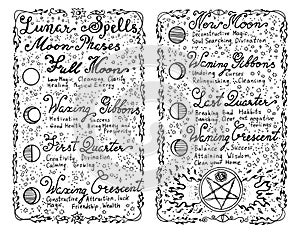 Lunar Spells
Moon Phases
Full Moon
Love Magic, Cleansing, Clarity
Healing, Natural Energy
Waxing Gibbons
Motivation, Success
Good Health, Bring Money and
Prosperity
First Quarter
Creativity, Divination,
Calming, Growing
Waxing Crescent
Constructive, Attraction, Luck
Magic, Friendship, Wealth
New Moon
Deconstructive Magic,
Soul Searching, Divination
Waning Gibbons
Undoing Curses
Relinquishing, Cleansing
Last Quarter
Breaking Bad Habits
Banishing
Waning Crescent
Balance, Success
Attaining Wisdom
Clean Your Home